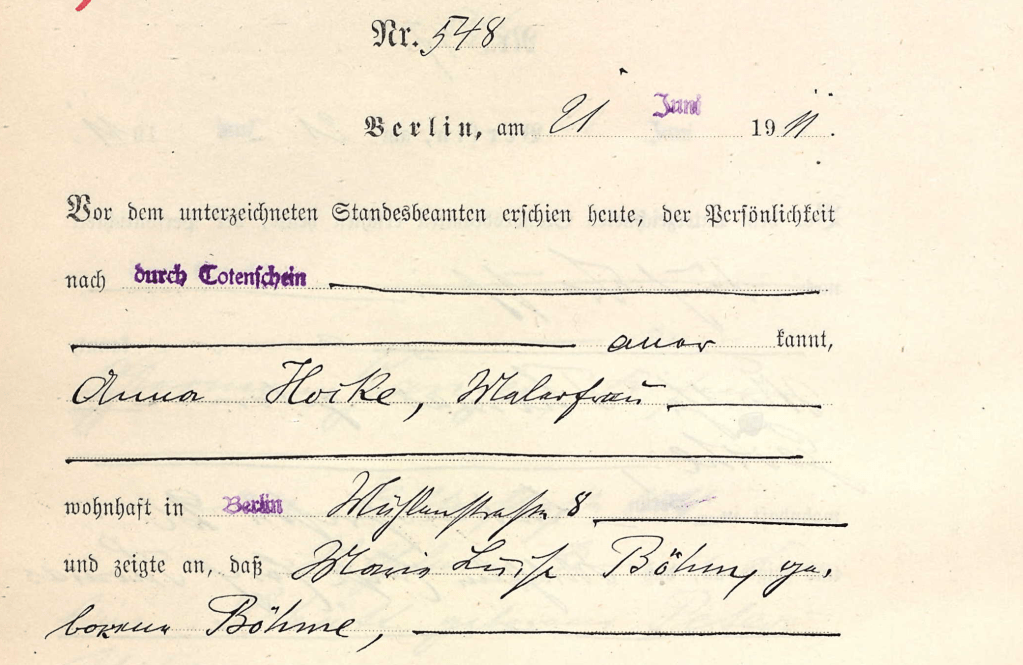 Nr. 548
Berlin, am 21 Juni 1911.
Vor dem unterzeichneten Standesbeamten erschien heute, der Persönlichkeit
nach durch Totenschein
aner kannt,
Anna Hocke, Malerfrau
wohnhaft in Berlin Mühlenstraße 8
und zeigte an, daß Marie Luise Böhm, ge-
borene Böhme,